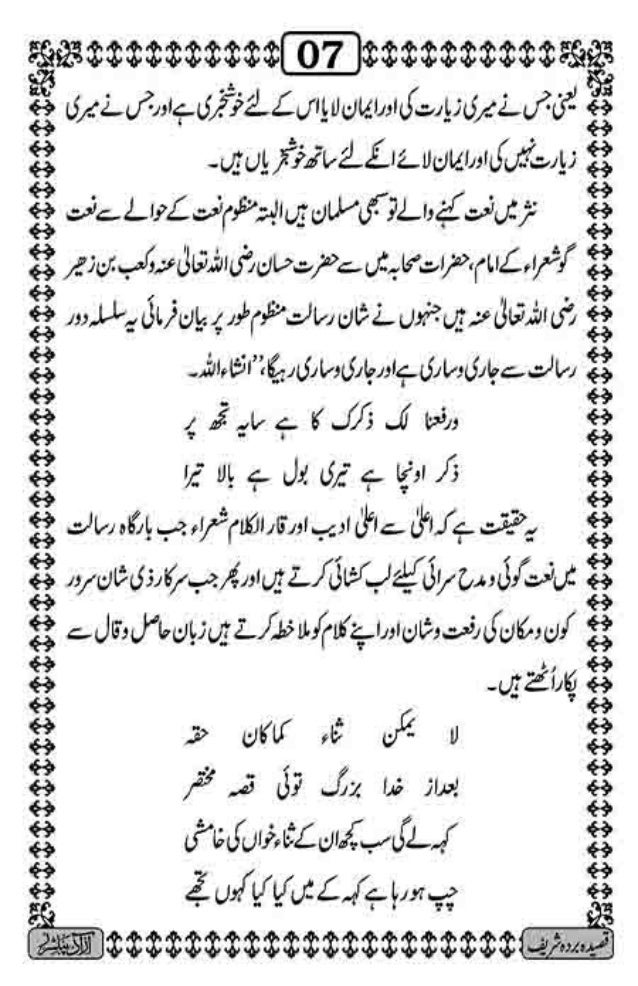 07
یعنی جس نے میری زیارت کی اور ایمان لایا اس کے لئے خوشخبری ہے اور جس نے میری
زیارت نہیں کی اور ایمان لائے انکے لئے ساتھ خوشخبریاں ہیں۔
نثر میں نعت کہنے والے تو سبھی مسلمان ہیں البتہ منظوم نعت کے حوالے سے نعت
گو شعراء کے امام، حضرات صحابہ میں سے حضرت حسان رضی اللہ تعالیٰ عنہ و کعب بن زھیر
رضی اللہ تعالیٰ عنہ ہیں جنہوں نے شان رسالت منظوم طور پر بیان فرمائی یہ سلسلہ دور
رسالت سے جاری و ساری ہے اور جاری و ساری رہیگا،’’انشاءاللہ۔
ورفعنا لک ذکرک کا ہے سایہ تجھ پر
ذکر اونچا ہے تیری بول ہے بالا تیرا
یہ حقیقت ہے کہ اعلیٰ سے اعلیٰ ادیب اور قار الکلام شعراء جب بارگاہ رسالت
میں نعت گوئی و مدح سرائی کیلئے لب کشائی کرتے ہیں اور پھر جب سرکار ذی شان سرور
کون و مکان کی رفعت و شان اور اپنے کلام کو ملاخطہ کرتے ہیں زبان حاصل و قال سے
پکار اُٹھتے ہیں۔
لا یمکن ثناء کما کان حقہ
بعداز خدا بزرگ توئی قصہ مختصر
کہہ لے گی سب کچھ ان کے ثناء خواں کی خامشی
چپ ہو رہا ہے کہہ کے میں کیا کیا کہوں تجھے
قصیدہ بردہ شریف